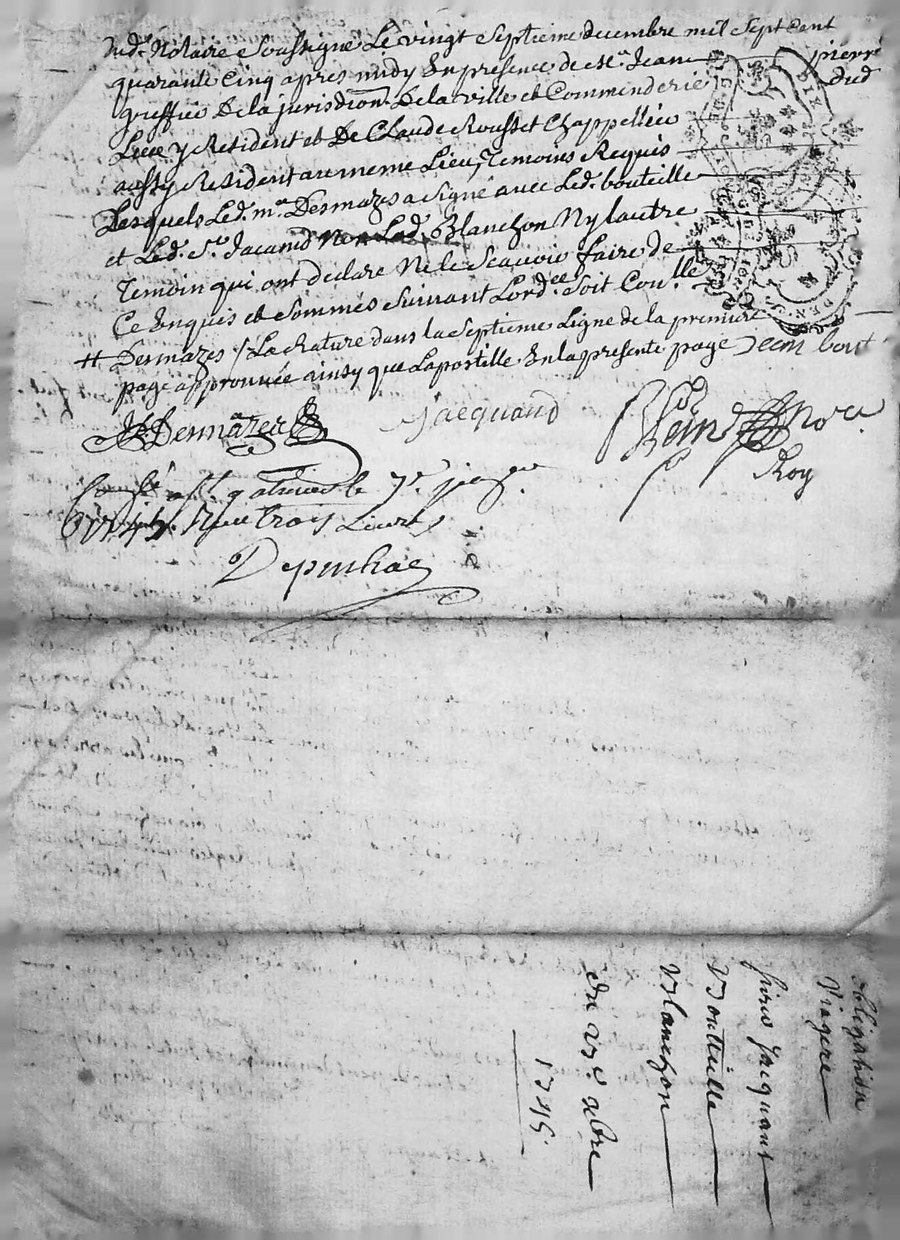 Nud. Notaire Soussigné Le vingt Septieme decembre mil Sept Cent
quarante Cinq apres midy En presence de Me. Jean pierre
greffier De la jurisdion. De la ville et Commenderie dud
Lieu y Resident et De Claude Rousset Chappellier
aussy Resident au meme Lieu, Temoins Requis
Lesquels Led. me. Desmazes a signé avec Led. bouteille
et Led. Sr. Jacquand Blanchon Ny lautre
Temoin qui ont declare Ne le Scavoir faire de
Ce Enquis et Sommés Suivant Lordce. Soit Conlle.
# Desmazes / La Rature dans la Septieme Ligne de la premiere
page approuvée ainsy que Lapostille En la presente page
Desmazes
Jacquand
Roy
trois Livres
obligation
viagere
Sieur Jacquant
Bouteille
Blanchon
du 27e. xbre
1745